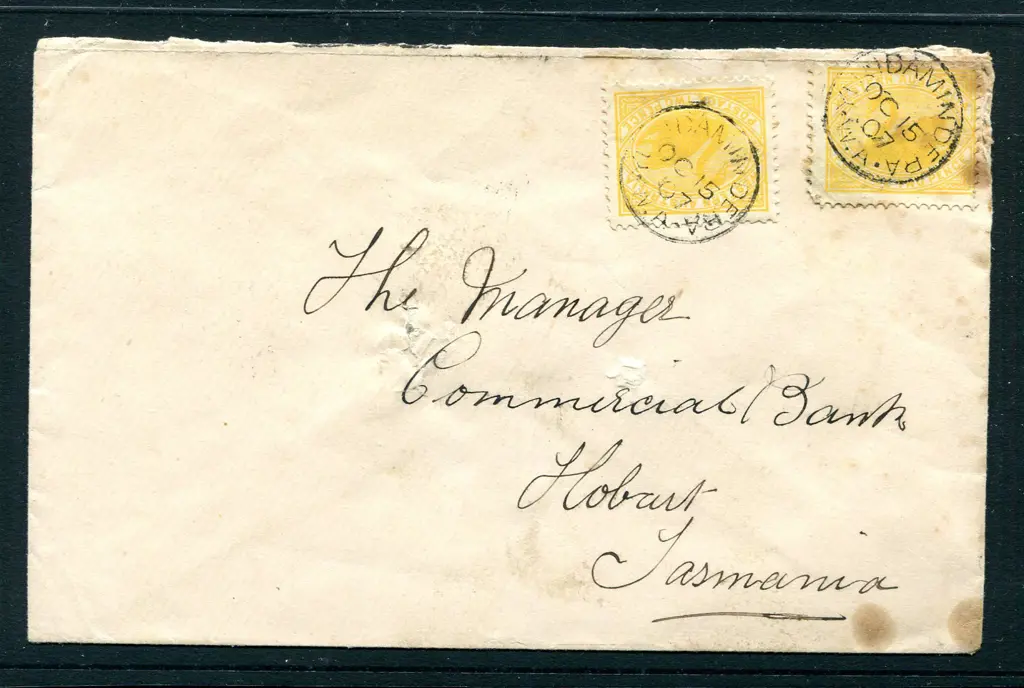 OC 15
07
OC 15
07
W.A
The Manager
Commercial Bank
Hobart
Tasmania